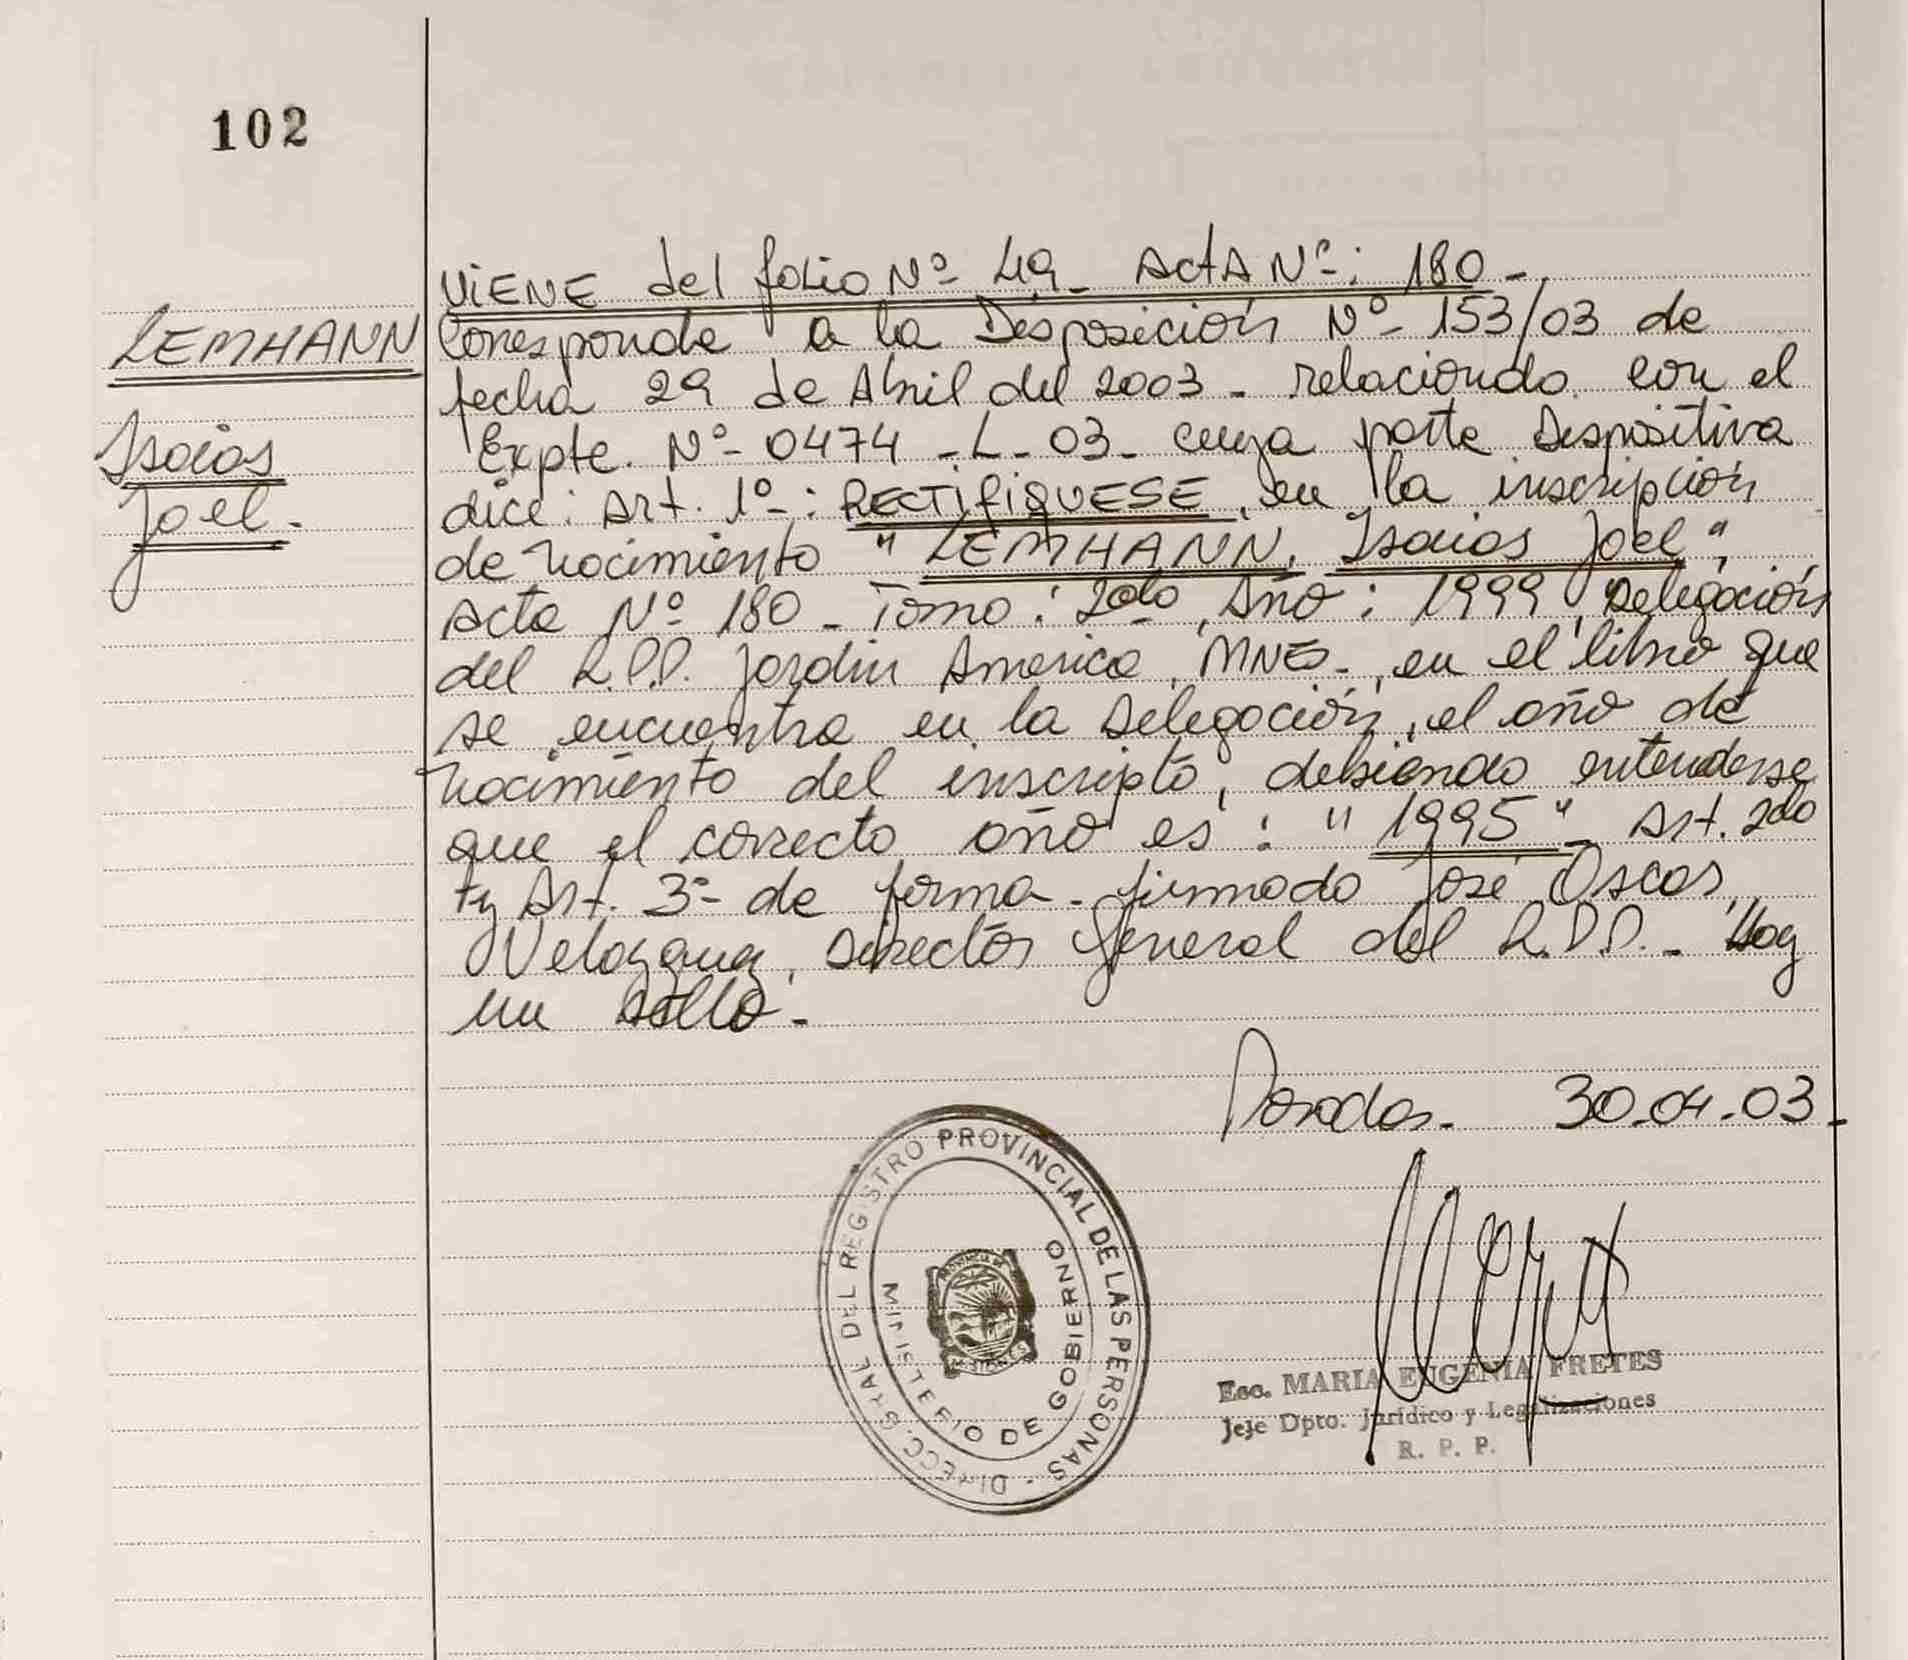 102
VIENE del folio Nº 49- ActA Nº: 180-
LEMHANN
Isaias
Joel.-
Corresponde a la Disposición Nº- 153/03 de
fecha 29 de Abril del 2003- relacionado con el
Expte. Nº- 0474-L-03- cuya parte Dispositiva
dice: Art. 1º-: RECTIFIQUESE, en la inscripción
de nacimiento "LEMHANN, Isaias Joel",
Acta Nº 180- Tomo: 2do, Año: 1999, Delegación
del R.P.P. Jardín America, MNES-, en el libro que
se encuentra en la Delegación, el año de
nacimiento del inscripto, debiendo entenderse
que el correcto año es: "1995"- Art. 2do
y Art. 3º- de forma- firmado José Oscar
Velazquez, Director General del R.P.P.- Hay
un sello.-
Posadas- 30-04-03-
DIRECC. GRAL. DEL REGISTRO PROVINCIAL DE LAS PERSONAS -
MINISTERIO DE GOBIERNO
PROVINCIA DE
MISIONES
Esc. MARIA EUGENIA FRETES
Jefe Dpto. Jurídico y Legalizaciones
R. P. P.